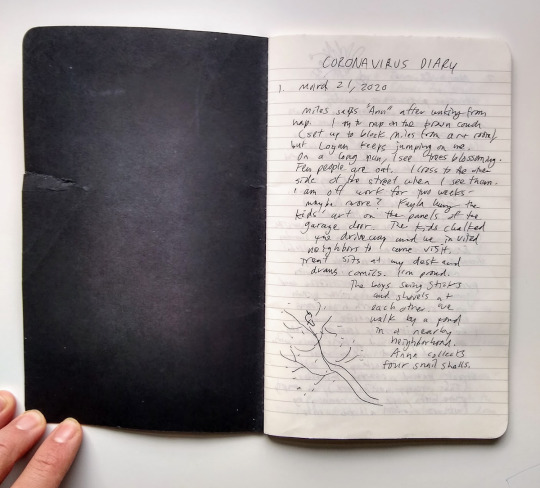 CORONAVIRUS DIARY
1. March 21, 2020
Miles says "Ann" after waking from
nap. I try to nap on the brown couch
(set up to block Miles from art room)
but Logan keeps jumping on me.
On a long run, I see trees blossoming.
Few people are out. I cross to the other
side of the street when I see them.
I am off work for two weeks-
maybe more? Kayla hung the
kids' art on the panels of the
garage door. The kids chalked
the driveway and we invited
neighbors to come visit.
Trent sits at my desk and
draws comics. I'm proud.
The boys swing sticks
and shovels at
each other. We
walk by a pond
in a nearby
neighborhood.
Anna collects
four snail shells.